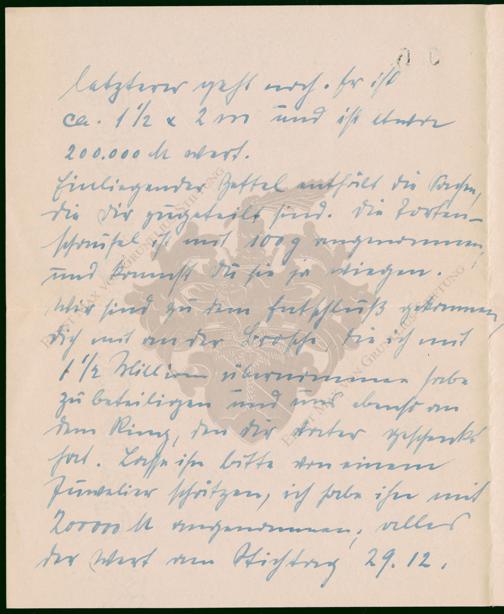 letzterer geht noch. Er ist
ca. 1 1/2 x 2 m und ist etwa
200.000 M wert.
Einliegender Zettel enthält die Sachen,
die Dir zugeteilt sind. Die Torten-
schaufel ist mit 100 g angenommen,
und kannst Du sie ja wiegen.
Wir sind zu dem Entschluß gekommen,
Dich mit an der Brosche, die ich mit
1 1/2 Million übernommen habe
zu beteiligen und uns ebenso an
dem Ring, den Dir Vater geschenkt
hat. Lasse ihn bitte von einem
Juwelier schätzen, ich habe ihn mit
200000 M angenommen, alles
der Wert am Stichtag 29.12.